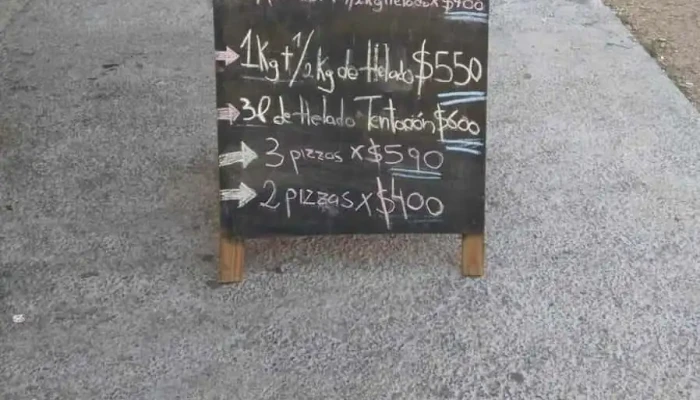 1/2 kg Helado x $400
1Kg + 1/2 kg de Helado $550
3l de Helado Tentación $600
3 pizzas x $590
2 pizzas x $400